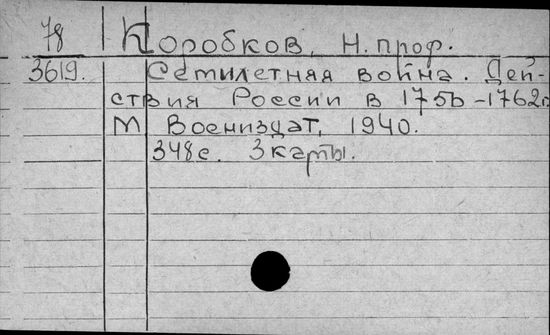 78 Коробков, Н. проф.
3619. Семилетняя война. Дей-
ствия России в 1756-1762г.
М Воениздат, 1940.
348с. 3 карты.